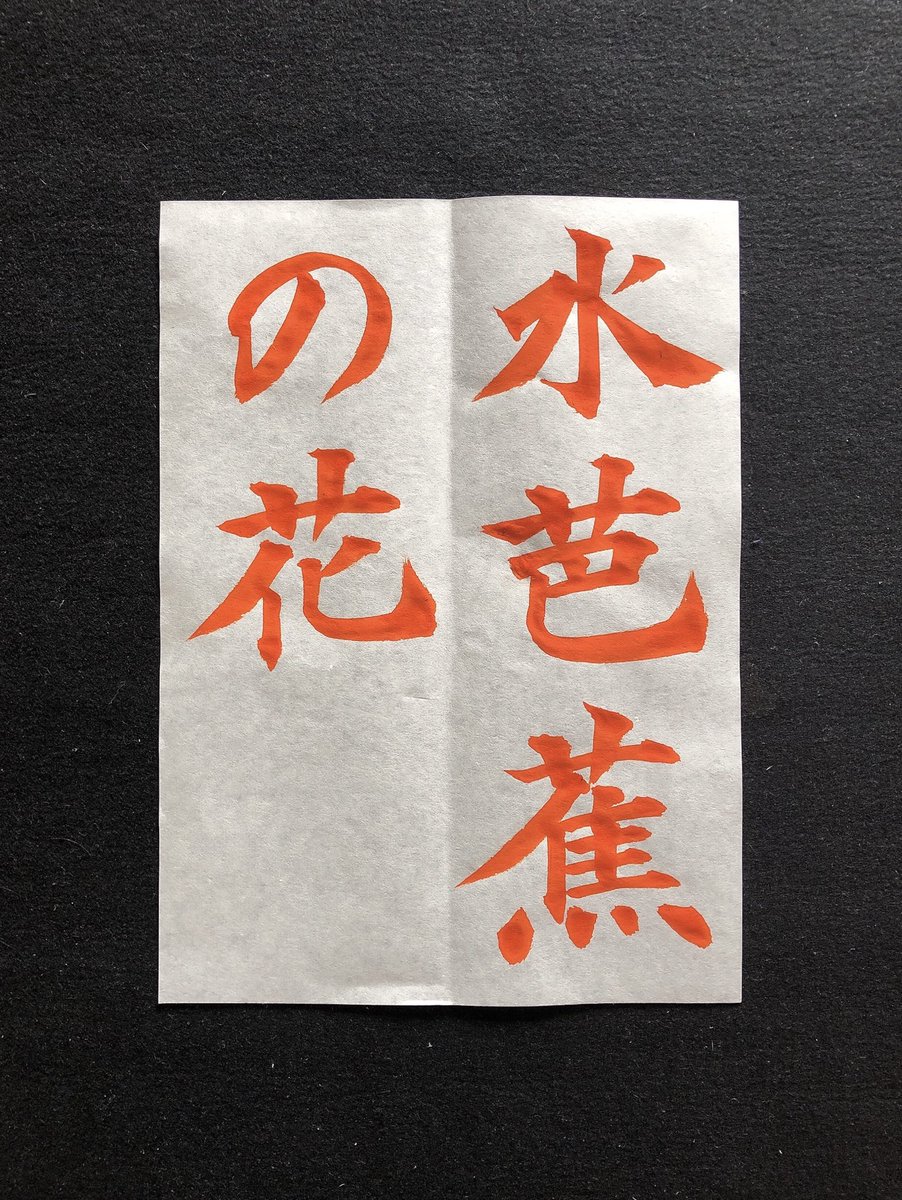 水芭蕉
の花